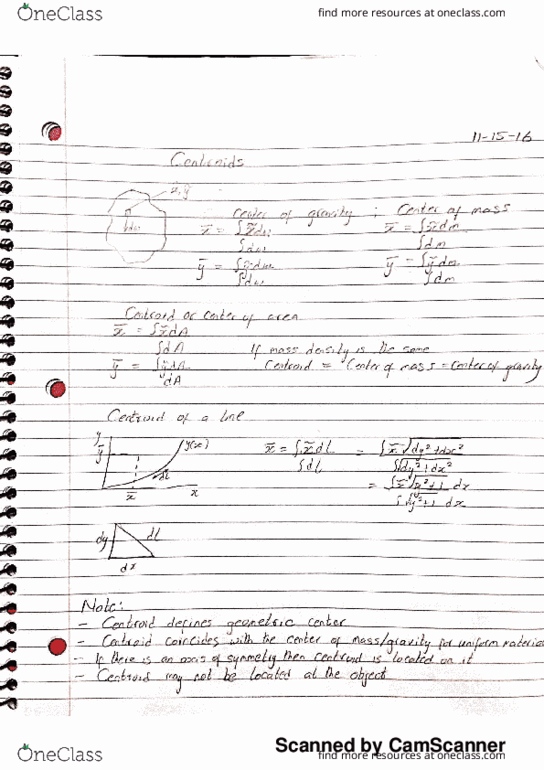 OneClass find more resources at oneclass.com
11-15-16
Centroids
x̄, ȳ
Center of gravity ; Center of mass
x̄ = ∫x̃dw x̄ = ∫x̃dm
∫dw ∫dm
ȳ = ∫ỹdw ȳ = ∫ỹdm
∫dw ∫dm
Centroid or center of area
x̄ = ∫x̃dA
∫dA If mass density is the same
ȳ = ∫ỹdA Centroid = Center of mass = Center of gravity
∫dA
Centroid of a line
y y(x) x̄ = ∫x̃dL = ∫x̃√dy²+dx²
ȳ dL ∫dL ∫√dy²+dx²
x̄ x = ∫x̃√y'²+1 dx
∫√y'²+1 dx
dy dL
dx
Note:
- Centroid defines geometric center
- Centroid coincides with the center of mass/gravity for uniform material
- If there is an axis of symmetry then centroid is located on it
- Centroid may not be located at the object
Scanned by CamScanner
OneClass find more resources at oneclass.com